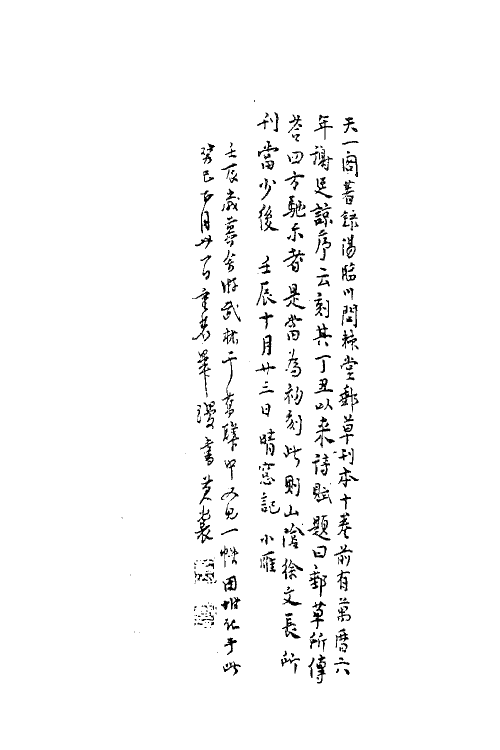 天一閣著錄湯臨川問棘堂郵草刊本十卷前有萬曆六
年謝廷諒序云刻其丁丑以來詩賦題曰郵草所傳
荅四方馳示者是當為初刻此則山陰徐文長所
刊當少後　壬辰十月廿三日晴窓記　小雁
壬辰歲莫客游武林于書肆中又見一帙因坿記于此
癸巳月廿日重裝畢漫書黃裳